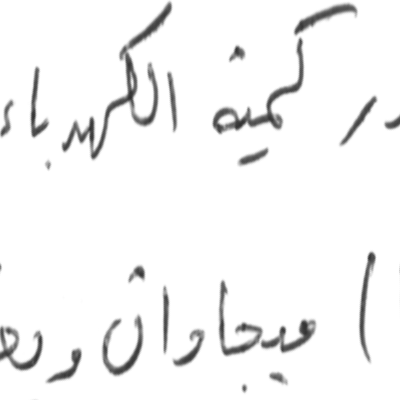 كمية الكهرباء
) ميجاوات و